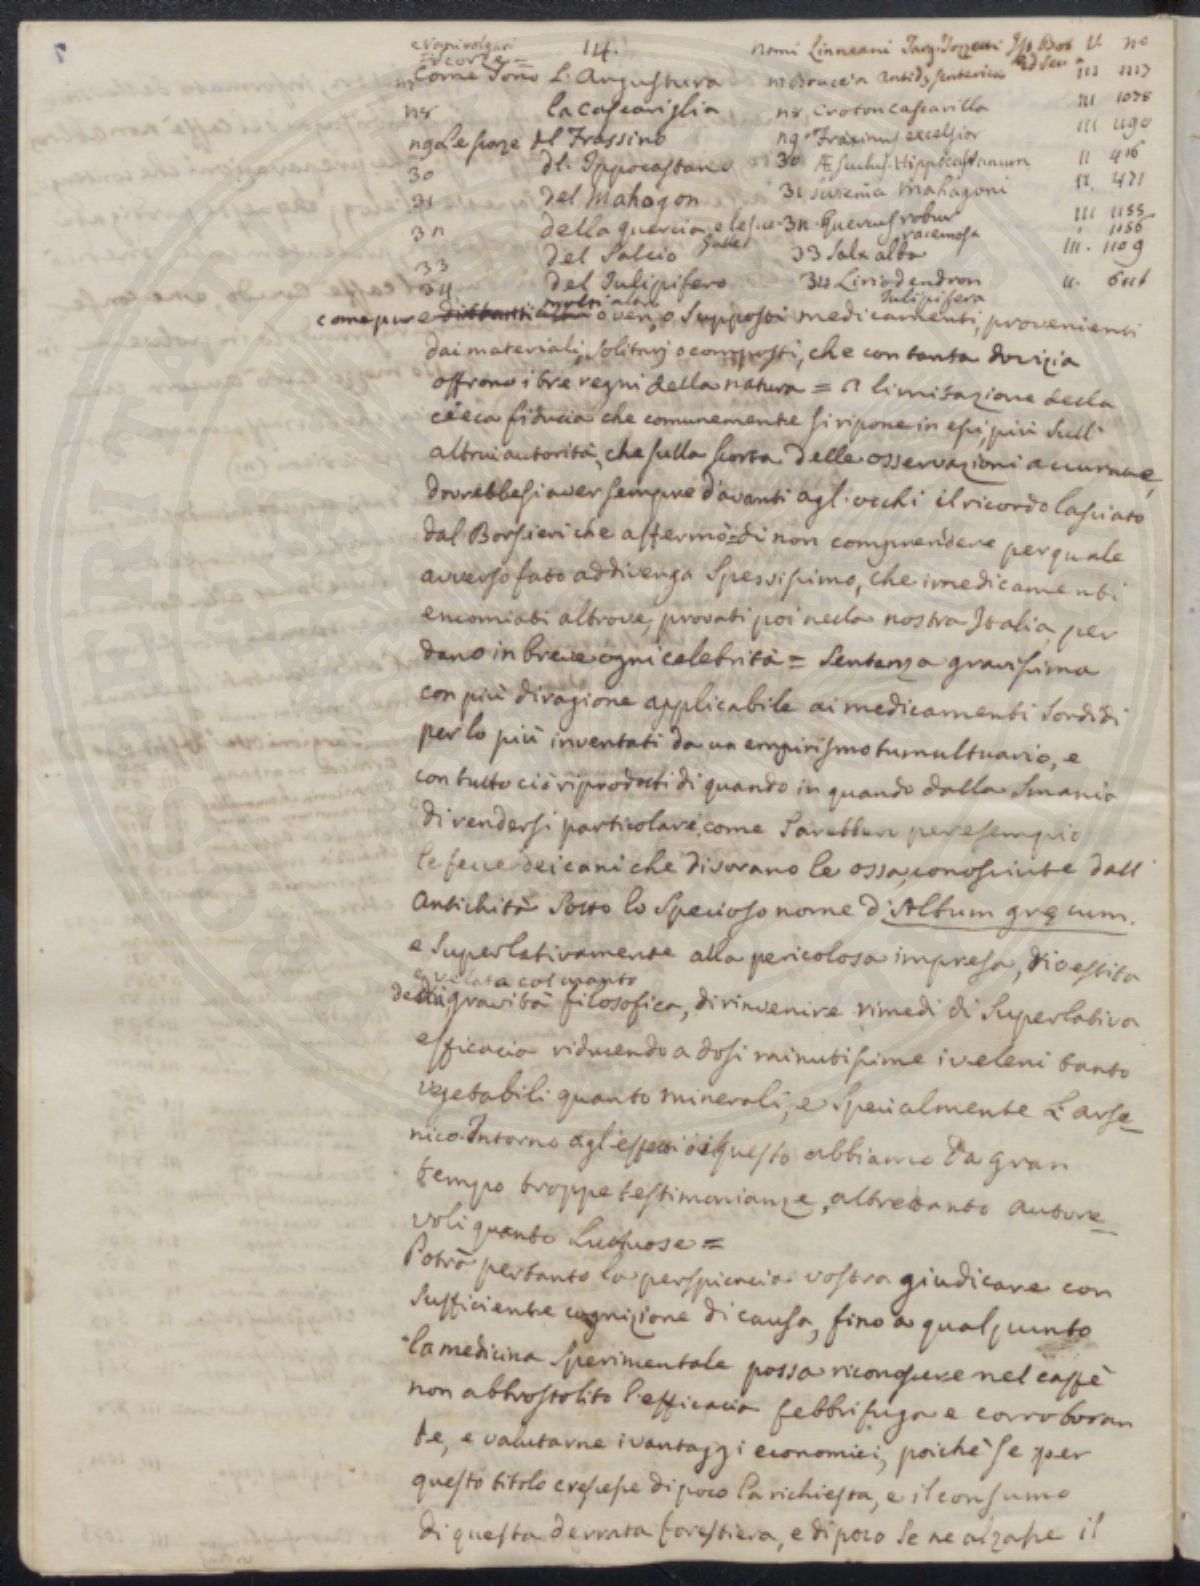 14.
e Nomi volgari
Scorze =
nomi Linneani Targ. Tozzetti Ist. Bot V. no
Ed sec
Come sono L. Angustura Bruccia antidysenterica III
n8 la Cascariglia n8 Croton cascarilla III 1078
n9 Le scorze del Frassino n9 Fraxinus excelsior III 1190
30 dl. Ippocastano 30 Æsculus Hippocastanum II 416
31 del Mahagon 31 Mahagoni II. 471
3n della quercia, e le sue 3n Quercus robur III 1155
Galle racemosa 1156
33 del Salcio 33 Salx alba III. 1109
34 del Tulipifero 34 Liriodendron II.
Tulipifera
molti altri
come pure o veri, o supposti medicamenti, provenienti
dai materiali, solitarj o composti, che con tanta dovizia
offrono i tre regni della natura = A limitazione della
cieca fiducia che comunemente si ripone in essi, più sull'
altrui autorità, che sulla scorta delle osservazioni accurate,
dovrebbesi aver sempre d'avanti agl'occhi il ricordo lasciato
dal Borsieri che affermò = di non comprendere per quale
avverso fato addivenga spessissimo, che i medicamenti
encomiati altrove, provati poi nella nostra Italia, per
dano in breve ogni celebrità = Sentenza gravissima
con più di ragione applicabile ai medicamenti sordidi
per lo più inventati da un empirismo tumultuario, e
con tutto ciò riprodotti di quando in quando dalla smania
di rendersi particolare, come sarebbero per esempio
le fecce dei cani che divorano le ossa, conosciute dall'
Antichità sotto lo specioso nome d'Album gręcum.
e superlativamente alla pericolosa impresa, divestita
e velata col manto
della gravità filosofica, di rinvenire rimedi di superlativa
efficacia riducendo a dosi minutissime i veleni tanto
vegetabili quanto minerali, e specialmente L'arse_
nico. Intorno agl'effetti di questo abbiamo da gran
tempo troppe testimonianze, altretanto autore_
voli quanto luttuose =
Potrà pertanto la perspicacia vostra giudicare con
sufficiente cognizione di causa, fino a qual punto
la medicina sperimentale possa riconoscere nel caffè
non abbrostolito l'efficacia febbrifuga e corroboran
te, e valutarne i vantaggi economici, poichè se per
questo titolo crescesse di poco la richiesta, e il consumo
di questa derrata forestiera, e di poco se ne alzasse il